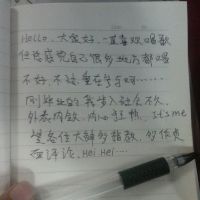 Hello、大家好、一直喜欢唱歌
但总感觉自己很多地方都唱
不好、不过重在参与啊……
刚毕业的我步入社会不久、
外表内敛、内心狂热、It's me
望各位大師多指教、多给点
评论、Hei Hei…